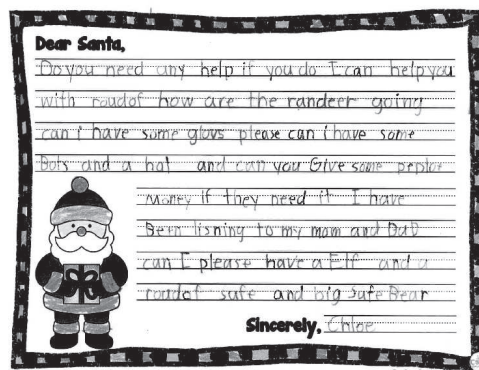 Dear Santa,
Do you need any help if you do I can help you
with roudof how are the randeer going
can i have some glovs please can i have some
Bots and a hat and can you Give some peplor
money if they need it I have
Been lisning to my mom and DaD
can I please have a Elf and a
roudof safe and big safe Bear
Sincerely, Chloe